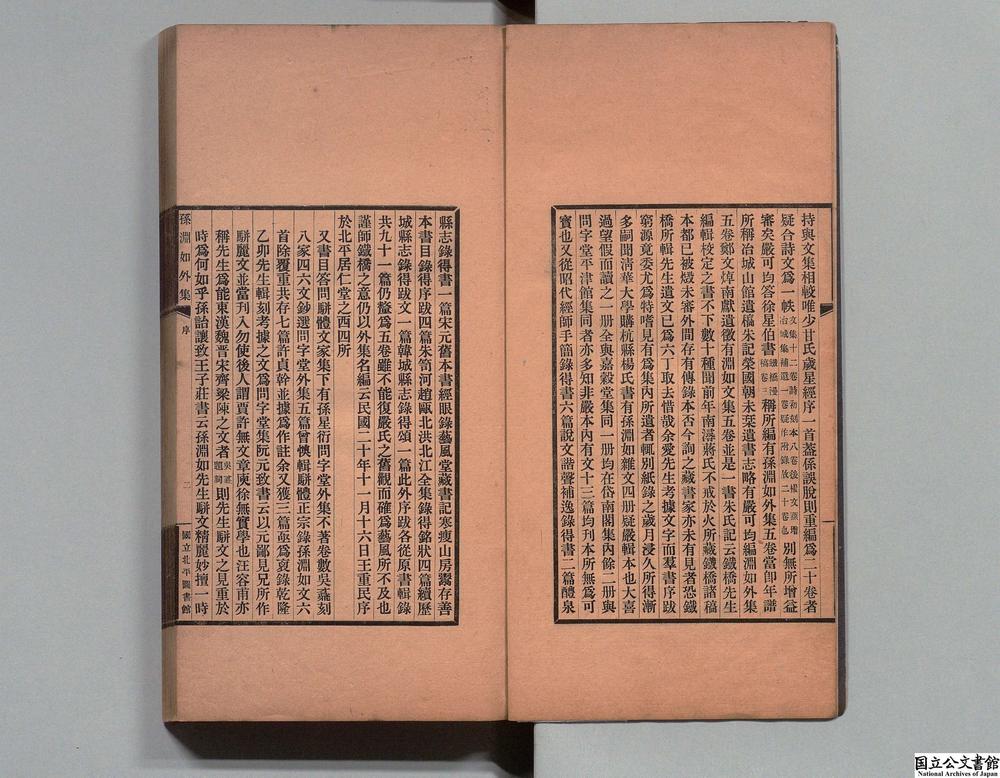 持與文集相較唯少甘氏歲星經序一首蓋係誤脫則重編為二十卷者
疑合詩文為一帙 別無所增益
審矣嚴可均答徐星伯書 稱所編有孫淵如外集五卷當卽年譜
所稱冶城山館遺稿朱記榮國朝未栞遺書志略有嚴可均編淵如外集
五卷鄭文焯南獻遺徵有淵如文集五卷並是一書朱氏記云鐵橋先生
編輯校定之書不下數十種聞前年南潯蔣氏不戒於火所藏鐵橋諸稿
本都已被燬未審外間存有傳錄本否今詢之藏書家亦未有見者恐鐵
橋所輯先生遺文已為六丁取去惜哉余愛先生考據文字而羣書序跋
窮源竟委尤為特嗜見有為集內所遺者輒別紙錄之歲月浸久所得漸
多嗣聞清華大學購杭縣楊氏書有孫淵如雜文四册疑嚴輯本也大喜
過望假而讀之一册全與嘉穀堂集同一册均在岱南閣集內餘二册與
問字堂平津館集同者亦多知非嚴本內有文十三篇均刊本所無為可
寶也又從昭代經師手簡錄得書六篇說文諧聲補逸錄得書二篇醴泉
縣志錄得書一篇宋元舊本書經眼錄藝風堂藏書記寒瘦山房鬻存善
本書目錄得序跋四篇朱笥河趙甌北洪北江全集錄得銘狀四篇續歷
城縣志錄得跋文一篇韓城縣志錄得頌一篇此外序跋各從原書輯錄
共九十一篇仍釐為五卷雖不能復嚴氏之舊觀而確為藝風所不及也
謹師鐵橋之意仍以外集名編云民國二十年十一月十六日王重民序
於北平居仁堂之西四所
又書目答問駢體文家集下有孫星衍問字堂外集不著卷數吳鼒刻
八家四六文鈔選問字堂外集五篇曾燠輯駢體正宗錄孫淵如文六
首除覆重共存七篇許貞幹並據為作註余又獲三篇亟為裒錄乾隆
乙卯先生輯刻考據之文為問字堂集阮元致書云以元鄙見兄所作
駢麗文並當刋入勿使後人謂賈許無文章庾徐無實學也汪容甫亦
稱先生為能東漢魏晋宋齊梁陳之文者吳鼒題詞則先生駢文之見重於
時為何如乎孫詒讓致王子莊書云孫淵如先生駢文精麗妙擅一時
孫淵如外集
序
二
國立北平圖書館
国立公文書館
National Archives of Japan